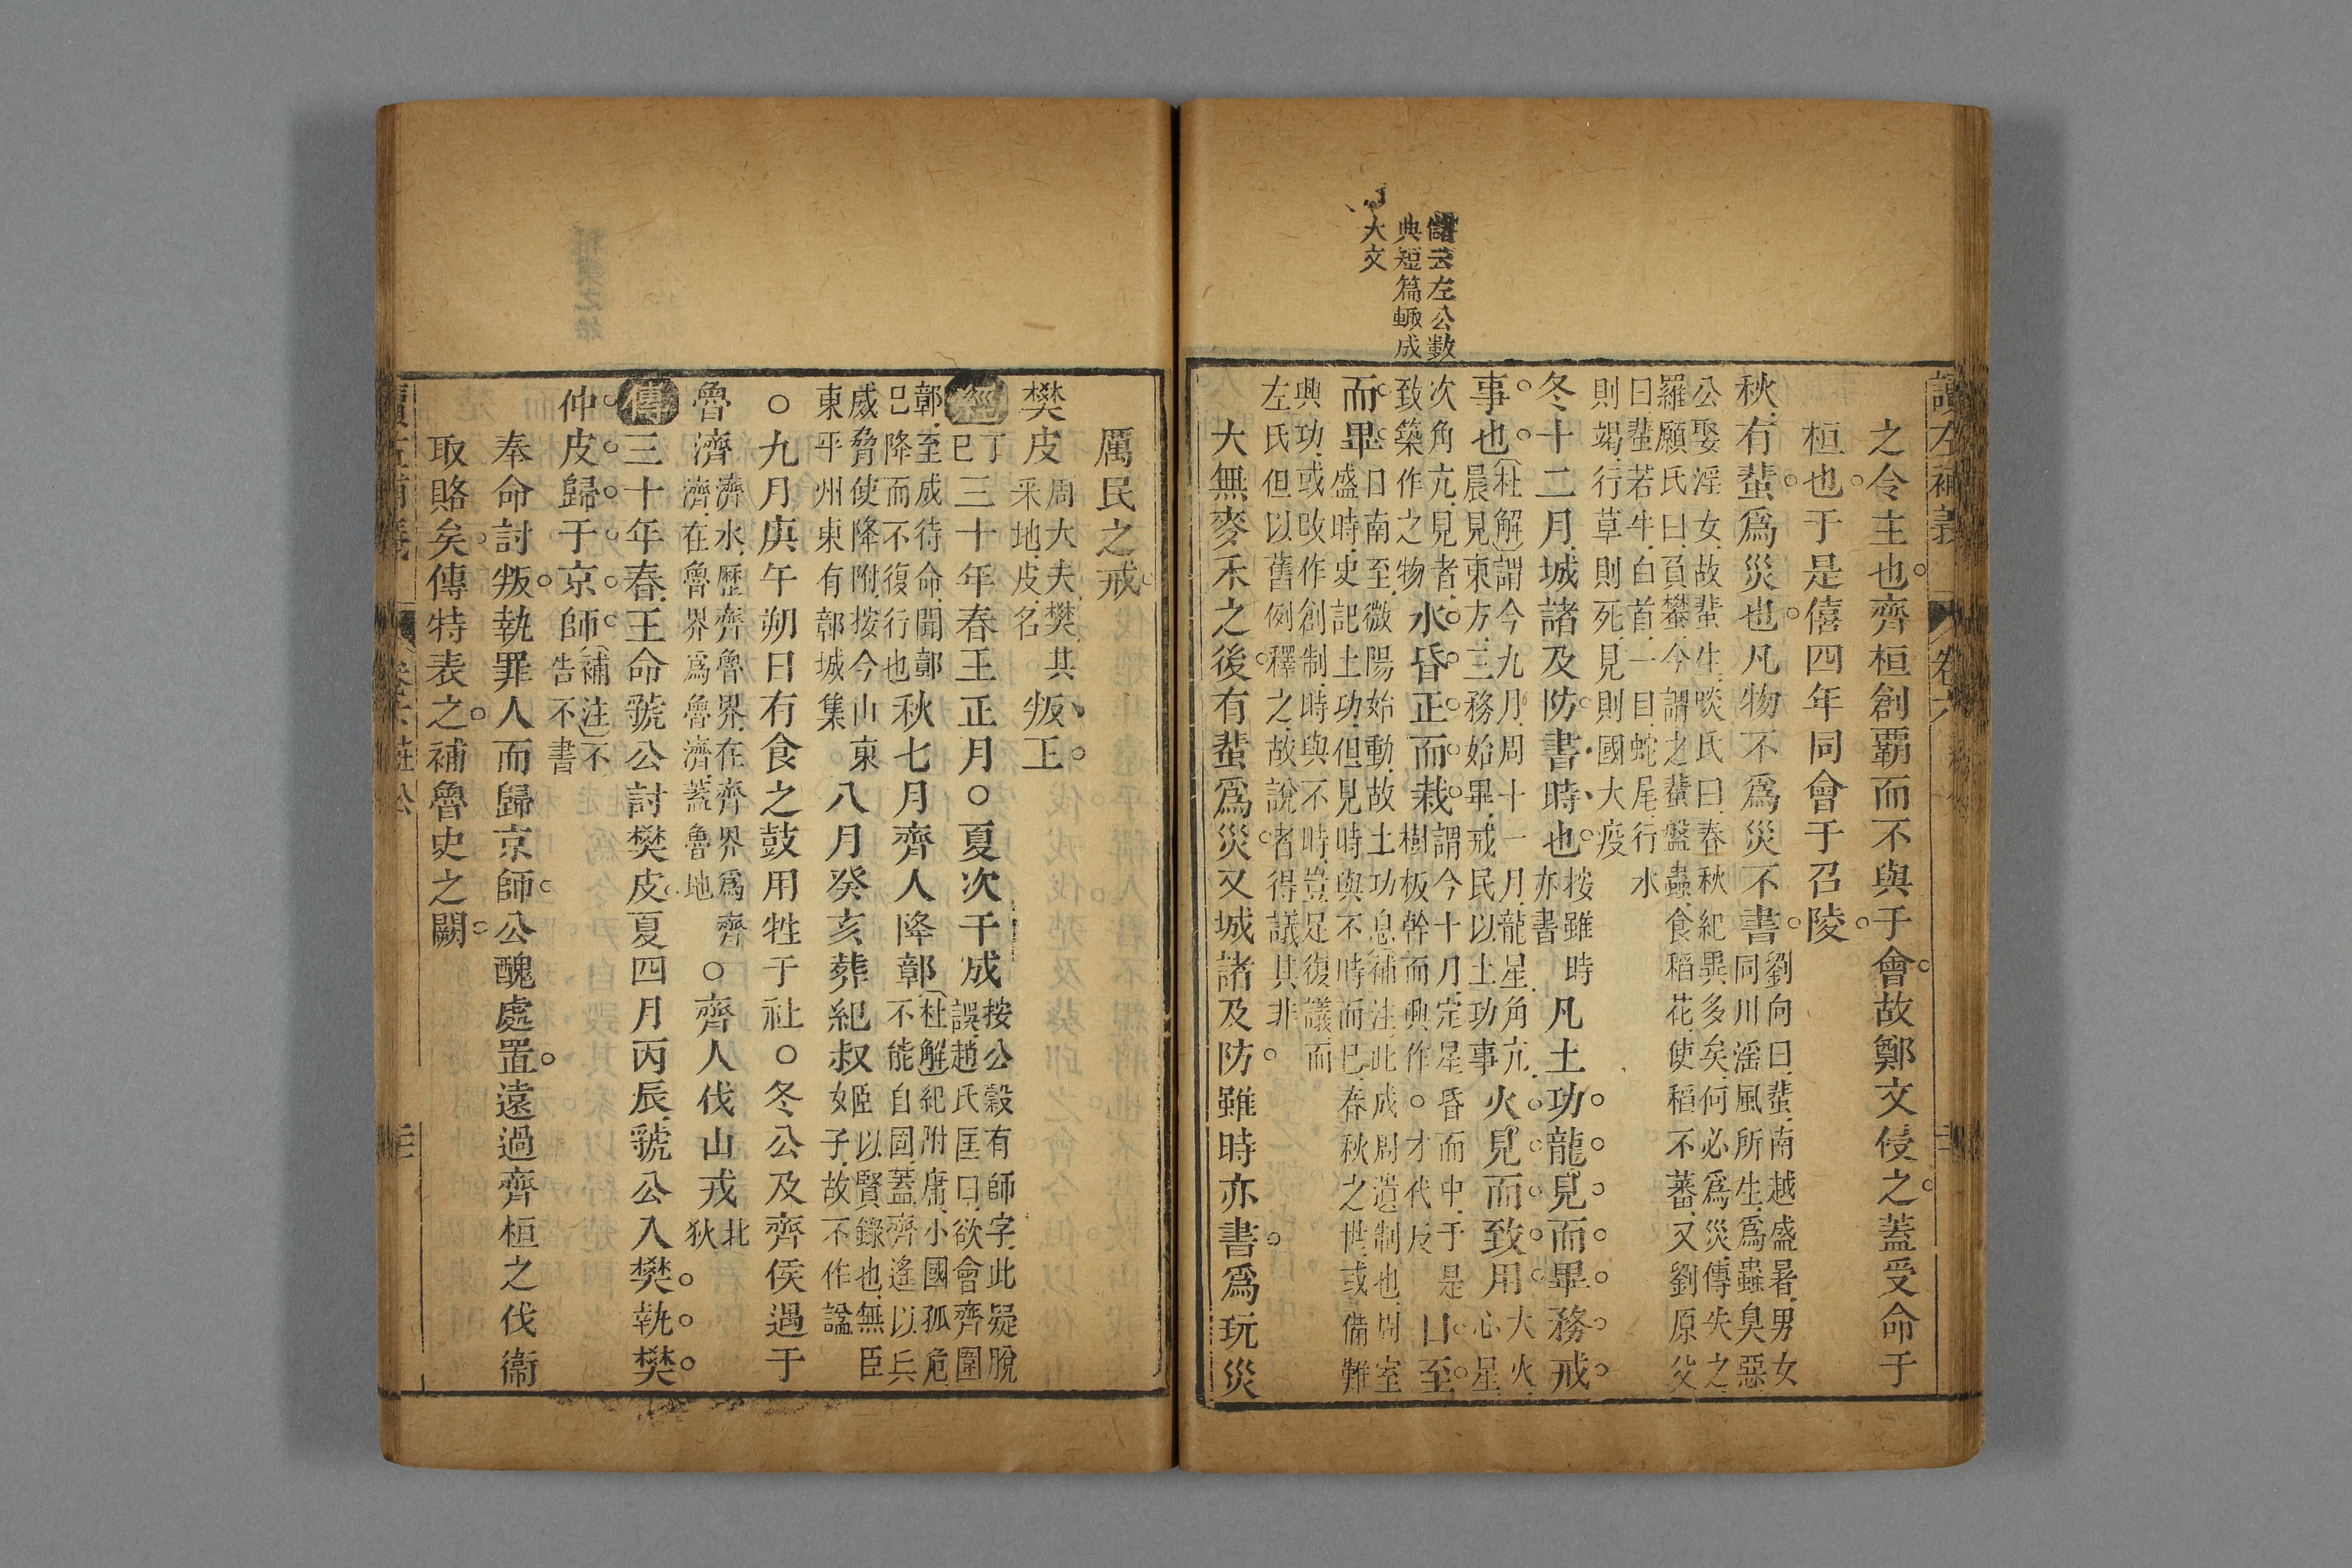 讀左補義 卷六
之令主也齊桓創霸而不與于會故鄭文侵之蓋受命于
桓也于是僖四年同會于召陵
秋有蜚爲災也凡物不爲災不書劉向曰蜚南越盛暑男女
同川淫風所生爲蟲臭惡
公娶淫女故蜚生啖氏曰春秋紀異多矣何必爲災傳失之
羅願氏曰負蠜今謂之蜚盤蟲食稻花使稻不蕃又劉原父
曰蜚若牛白首一目蛇尾行水
則竭行草則死見則國大疫
冬十二月城諸及防書時也按雖時
亦書凡土功龍見而畢務戒
事也杜解謂今九月周十一月龍星角亢
晨見東方三務始畢戒民以土功事火見而致用大火
心星
次角亢見者
致築作之物水昏正而栽謂今十月定星昏而中于是
樹板幹而興作○才代反日至
而畢日南至微陽始動故土功息補注此成周遺制也周室
盛時史記土功但見時與不時而已春秋之世或備難
興功或改作創制時與不時豈足復議而
左氏但以舊例釋之故說者得議其非
大無麥禾之後有蜚爲災又城諸及防雖時亦書爲玩災
儲云左公數
典短篇輒成
大文
厲民之戒
樊皮周大夫樊其
采地皮名叛王
經丁
巳三十年春王正月○夏次于成按公穀有師字此疑脫
誤趙氏匡曰欲會齊圍
鄣至成待命聞鄣
已降而不復行也秋七月齊人降鄣杜解紀附庸小國孤危
不能自固蓋齊遙以兵
威脅使降附按今山東
東平州東有鄣城集八月癸亥葬紀叔姬以賢錄也無臣
女子故不作諡
○九月庚午朔日有食之鼓用牲于社○冬公及齊侯遇于
魯濟濟水歷齊魯界在齊界爲齊
濟在魯界爲魯濟蓋魯地○齊人伐山戎北
狄
傳三十年春王命虢公討樊皮夏四月丙辰虢公入樊執樊
仲皮歸于京師補注不
告不書
奉命討叛執罪人而歸京師公醜處置遠過齊桓之伐衞
取賂矣傳特表之補魯史之闕